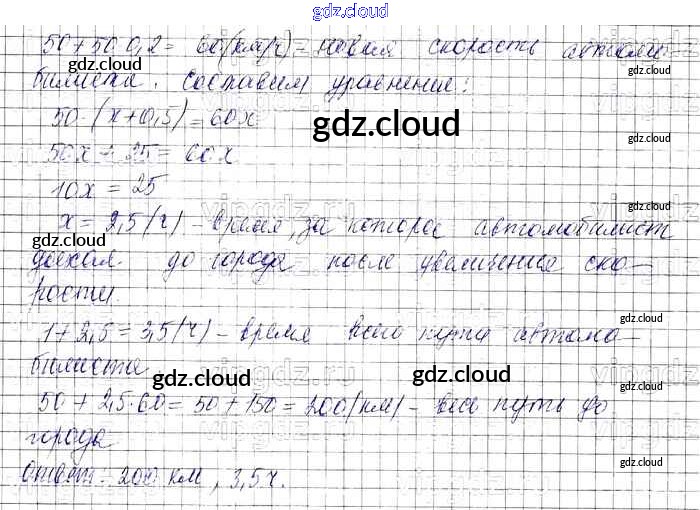 gdz.cloud
50+50·0,2= 60(км/ч) – новая скорость автомо-
билиста. Составим уравнение:
50·(x+0,5)=60x
50x + 25 = 60x
10x = 25
x = 2,5 (ч) – время, за которое автомобилист
доехал до города после увеличения ско-
рости.
1+2,5=3,5(ч) – время всего пути автомо-
билиста
50 + 2,5·60= 50+150=200(км) – весь путь до
города
Ответ: 200 км, 3,5ч.
gdz.cloud
gdz.cloud
gdz.cloud
gdz.cloud
gdz.cloud
gdz.cloud
gdz.cloud
gdz.cloud
gdz.cloud
gdz.cloud
gdz.cloud
gdz.cloud
gdz.cloud